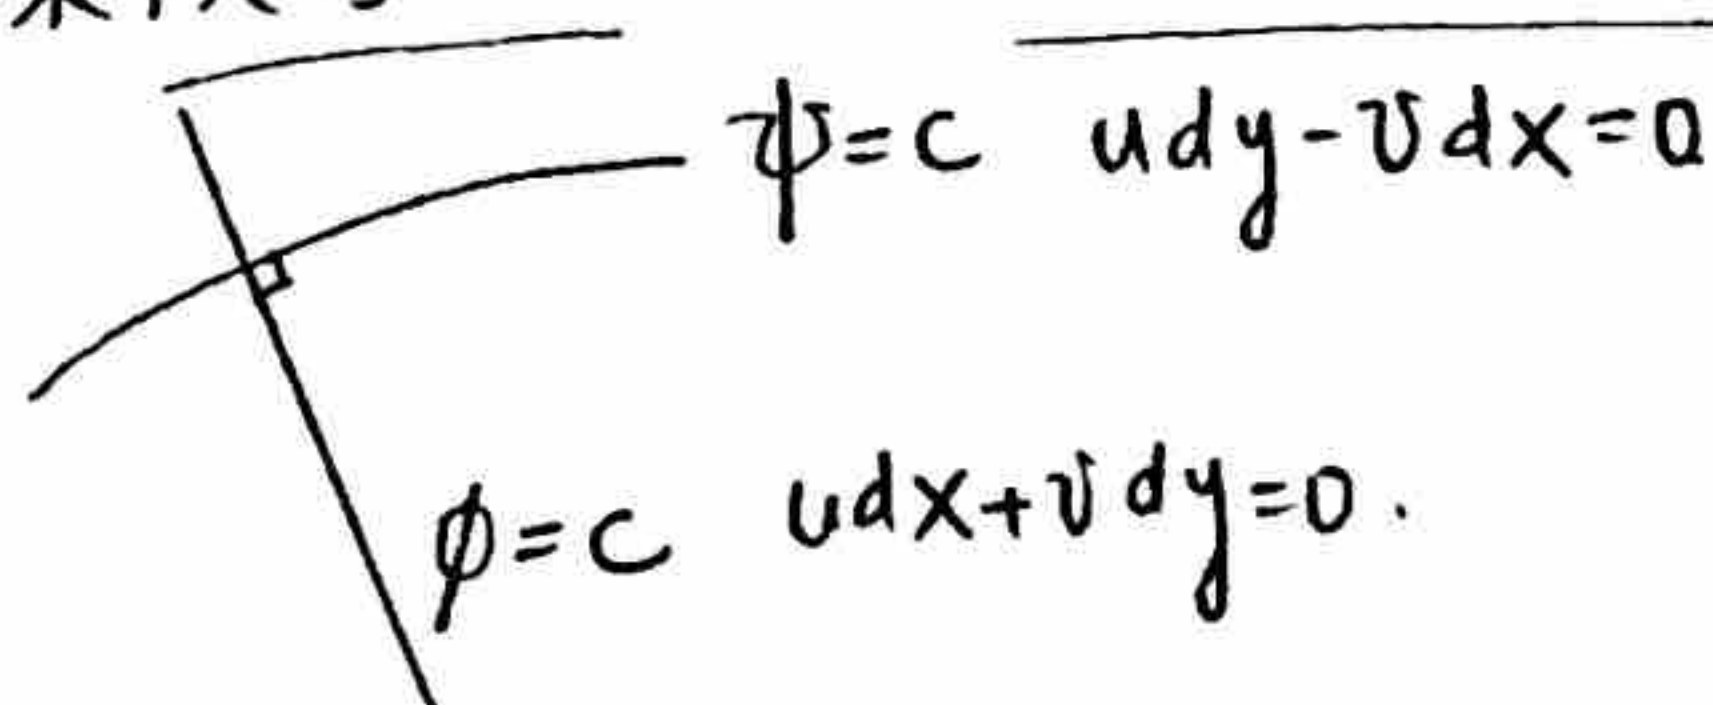 ψ=c udy-vdx=0
φ=c udx+vdy=0.